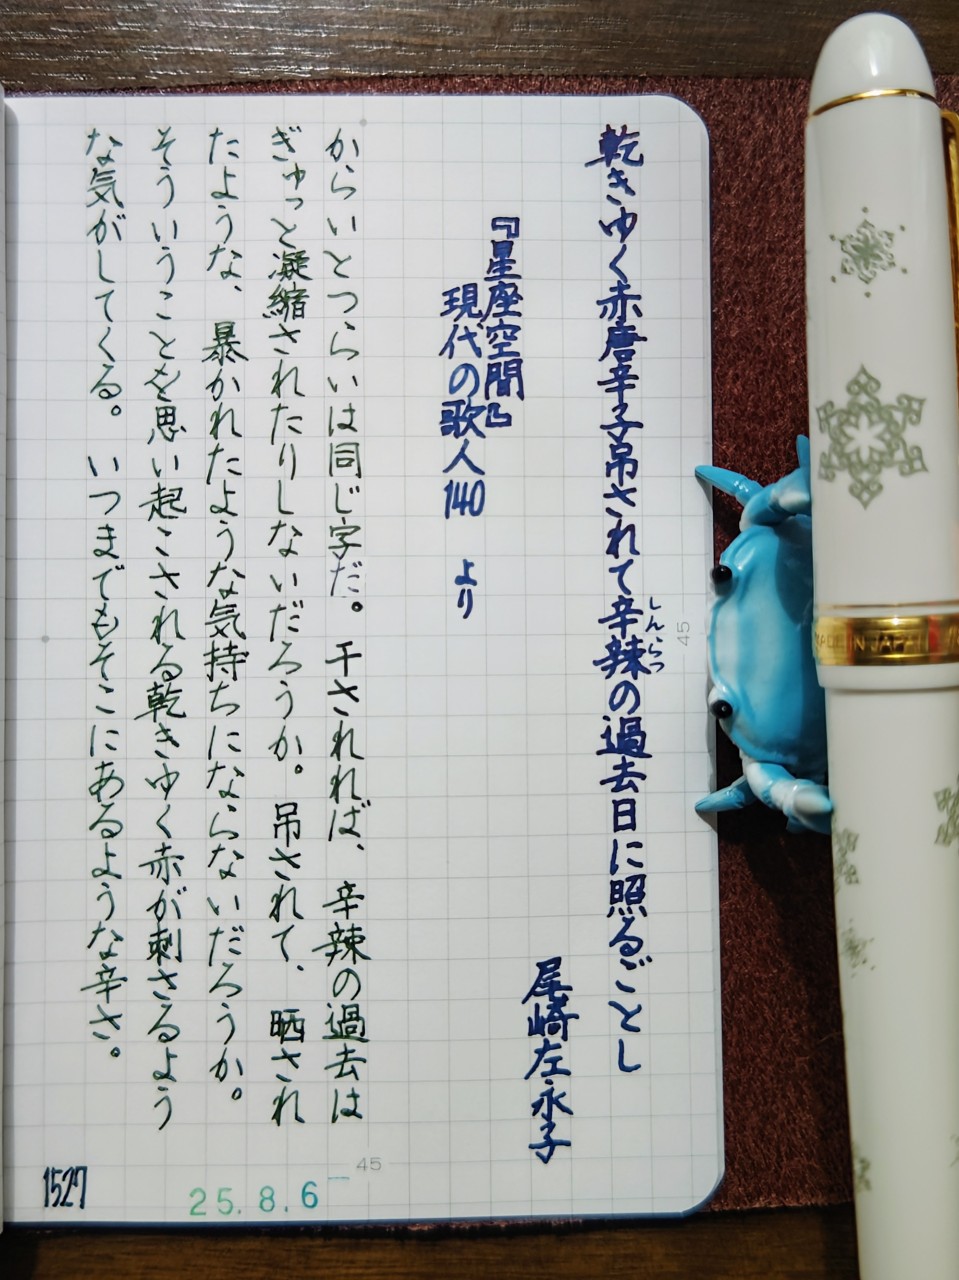 乾きゆく赤唐辛子吊されて辛辣の過去日に照るごとし
しんらつ
尾崎左永子
『星座空間』
現代の歌人140 より
からいとつらいは同じ字だ。干されれば、辛辣の過去は
ぎゅっと凝縮されたりしないだろうか。吊されて、晒され
たような、暴かれたような気持ちにならないだろうか。
そういうことを思い起こされる乾きゆく赤が刺さるよう
な気がしてくる。いつまでもそこにあるような辛さ。
1527
25.8.6
45
45
MADE IN JAPAN